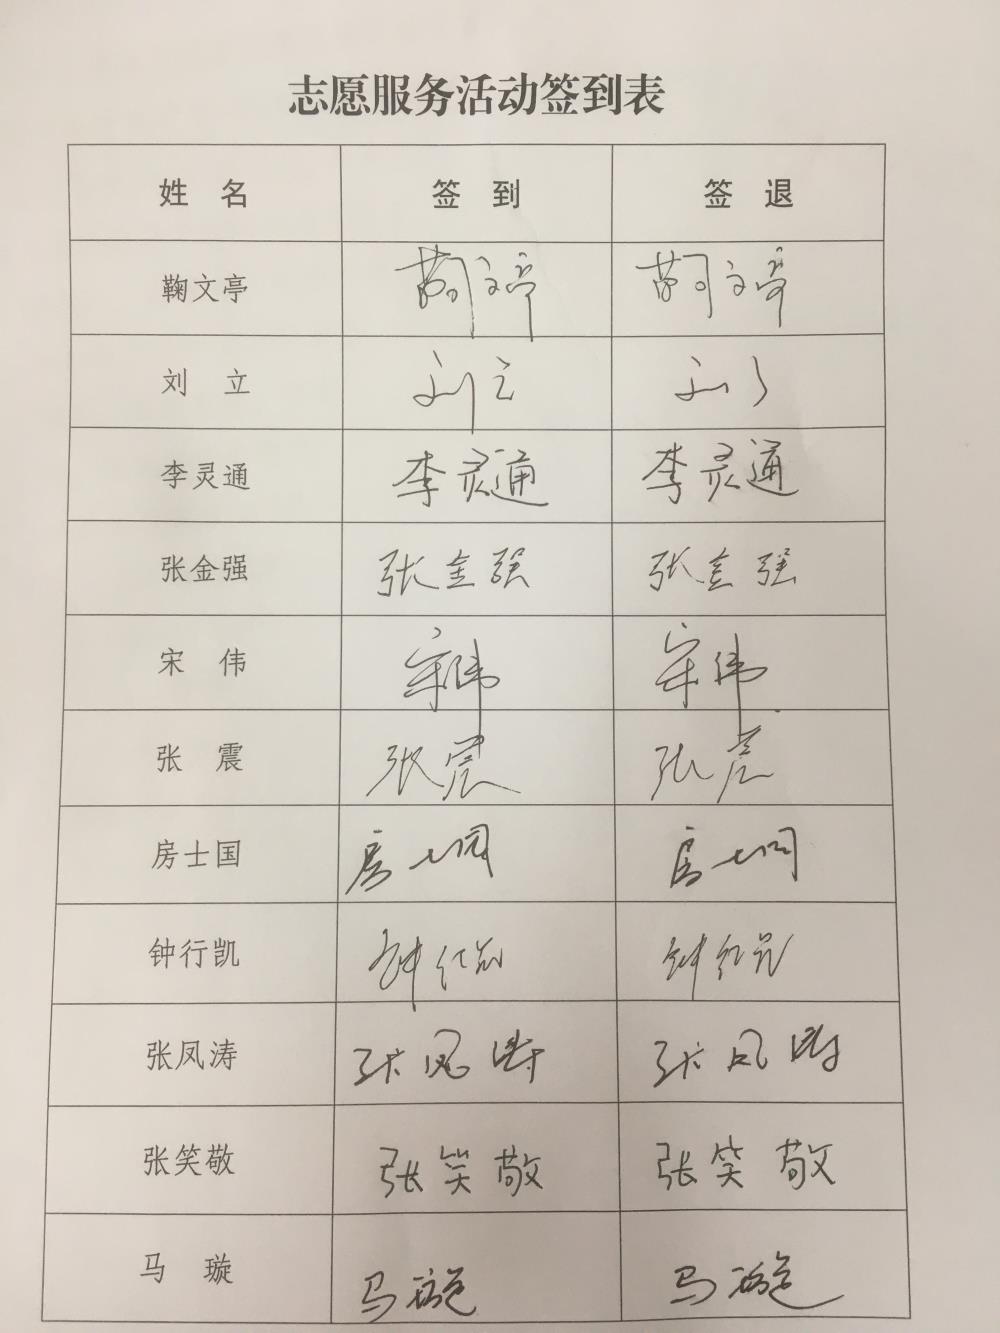 志愿服务活动签到表
姓 名 签 到 签 退
鞠文亭 鞠文亭 鞠文亭
刘 立 刘立 刘立
李灵通 李灵通 李灵通
张金强 张金强 张金强
宋 伟 宋伟 宋伟
张 震 张震 张震
房士国 房士国 房士国
钟行凯 钟行凯 钟行凯
张凤涛 张凤涛 张凤涛
张笑敬 张笑敬 张笑敬
马 璇 马璇 马璇